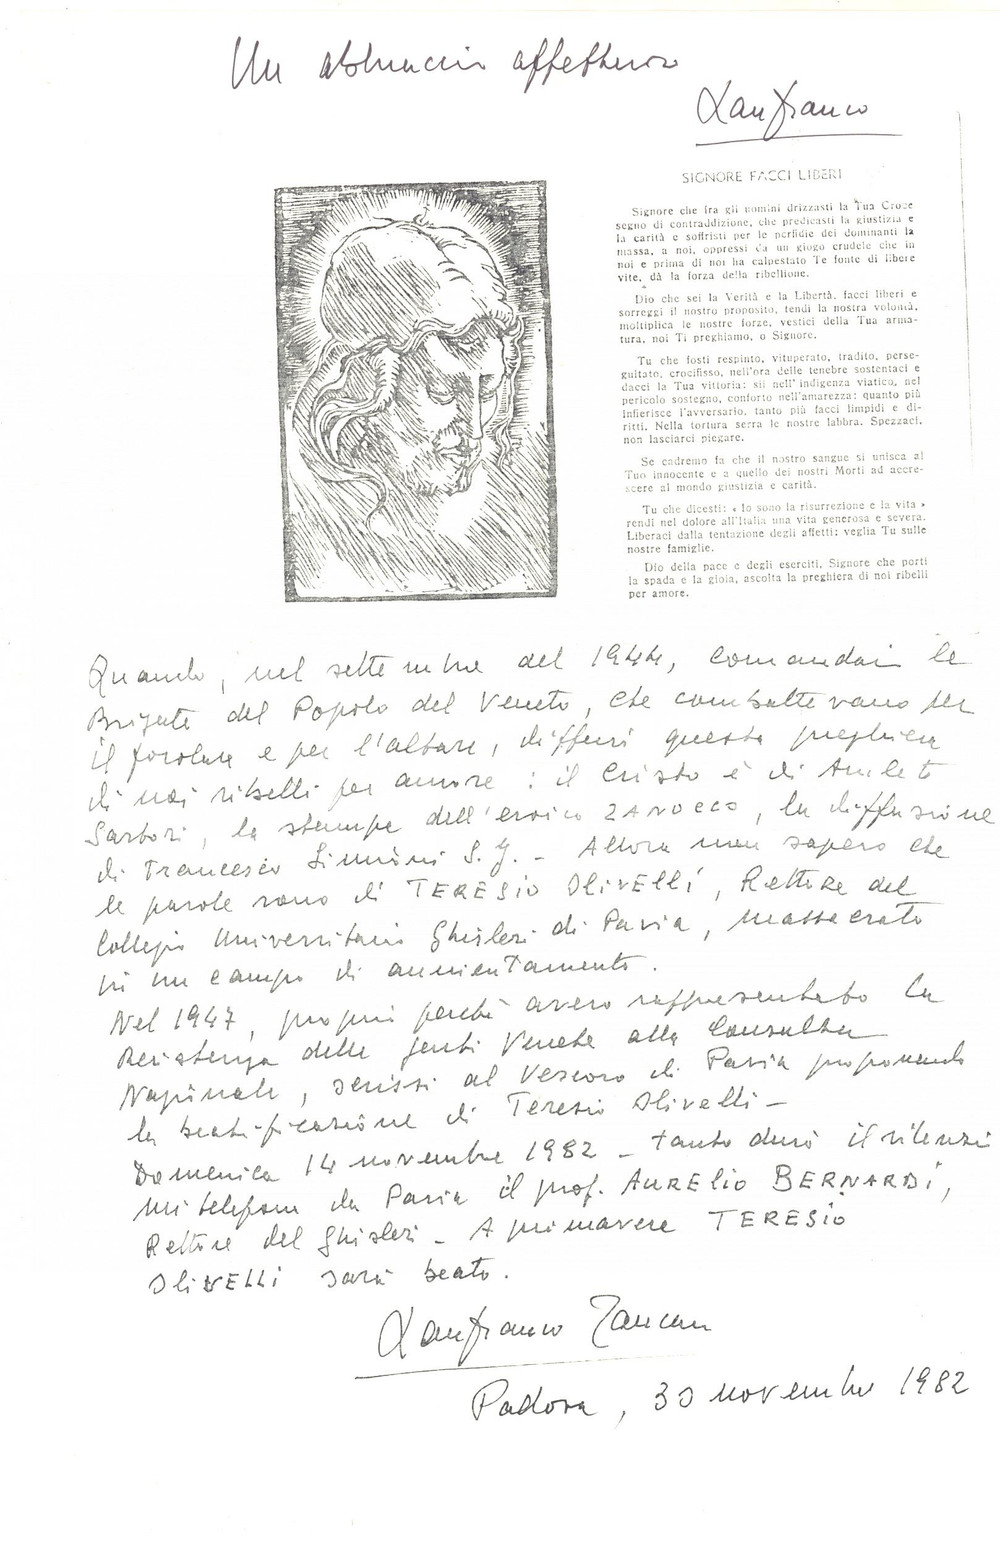 Un abbraccio affettuoso
Lanfranco
SIGNORE FACCI LIBERI
Signore che fra gli uomini drizzasti la Tua Croce
segno di contraddizione, che predicasti la giustizia e
la carità e soffristi per le perfidie dei dominanti la
massa, a noi, oppressi da un giogo crudele che in
noi e prima di noi ha calpestato Te fonte di libere
vite, dà la forza della ribellione.
Dio che sei la Verità e la Libertà, facci liberi e
sorreggi il nostro proposito, tendi la nostra volontà,
moltiplica le nostre forze, vestici della Tua arma-
tura, noi Ti preghiamo, o Signore.
Tu che fosti respinto, vituperato, tradito, perse-
guitato, crocifisso, nell'ora delle tenebre sostentaci e
dacci la Tua vittoria: sii nell'indigenza viatico, nel
pericolo sostegno, conforto nell'amarezza: quanto più
infierisce l'avversario, tanto più facci limpidi e di-
ritti. Nella tortura serra le nostre labbra. Spezzaci,
non lasciarci piegare.
Se cadremo fa che il nostro sangue si unisca al
Tuo innocente e a quello dei nostri Morti ad accre-
scere al mondo giustizia e carità.
Tu che dicesti: « Io sono la risurrezione e la vita »
rendi nel dolore all'Italia una vita generosa e severa.
Liberaci dalla tentazione degli affetti: veglia Tu sulle
nostre famiglie.
Dio della pace e degli eserciti, Signore che porti
la spada e la gioia, ascolta la preghiera di noi ribelli
per amore.
Quando, nel settembre del 1944, comandai le
Brigate del Popolo del Veneto, che combattevano per
il focolare e per l'altare, diffusi questa preghiera
di noi ribelli per amore: il Cristo è di Amleto
Sartori, la stampa dell'eroico ZANOCCO, la diffusione
di Francesco S.J. - Allora non sapevo che
le parole sono di TERESIO OLIVELLI, Rettore del
Collegio Universitario Ghisleri di Pavia, massacrato
in un campo di annientamento.
Nel 1947, proprio perchè avevo rappresentato la
Resistenza delle genti Venete alla Consulta
Nazionale, scrissi al Vescovo di Pavia proponendo
la beatificazione di Teresio Olivelli -
Domenica 14 novembre 1982 - tanto durò il silenzio
mi telefona da Pavia il prof. AURELIO BERNARDI,
Rettore del Ghisleri - A primavera TERESIO
OLIVELLI sarà beato.
Lanfranco Zancan
Padova, 30 novembre 1982